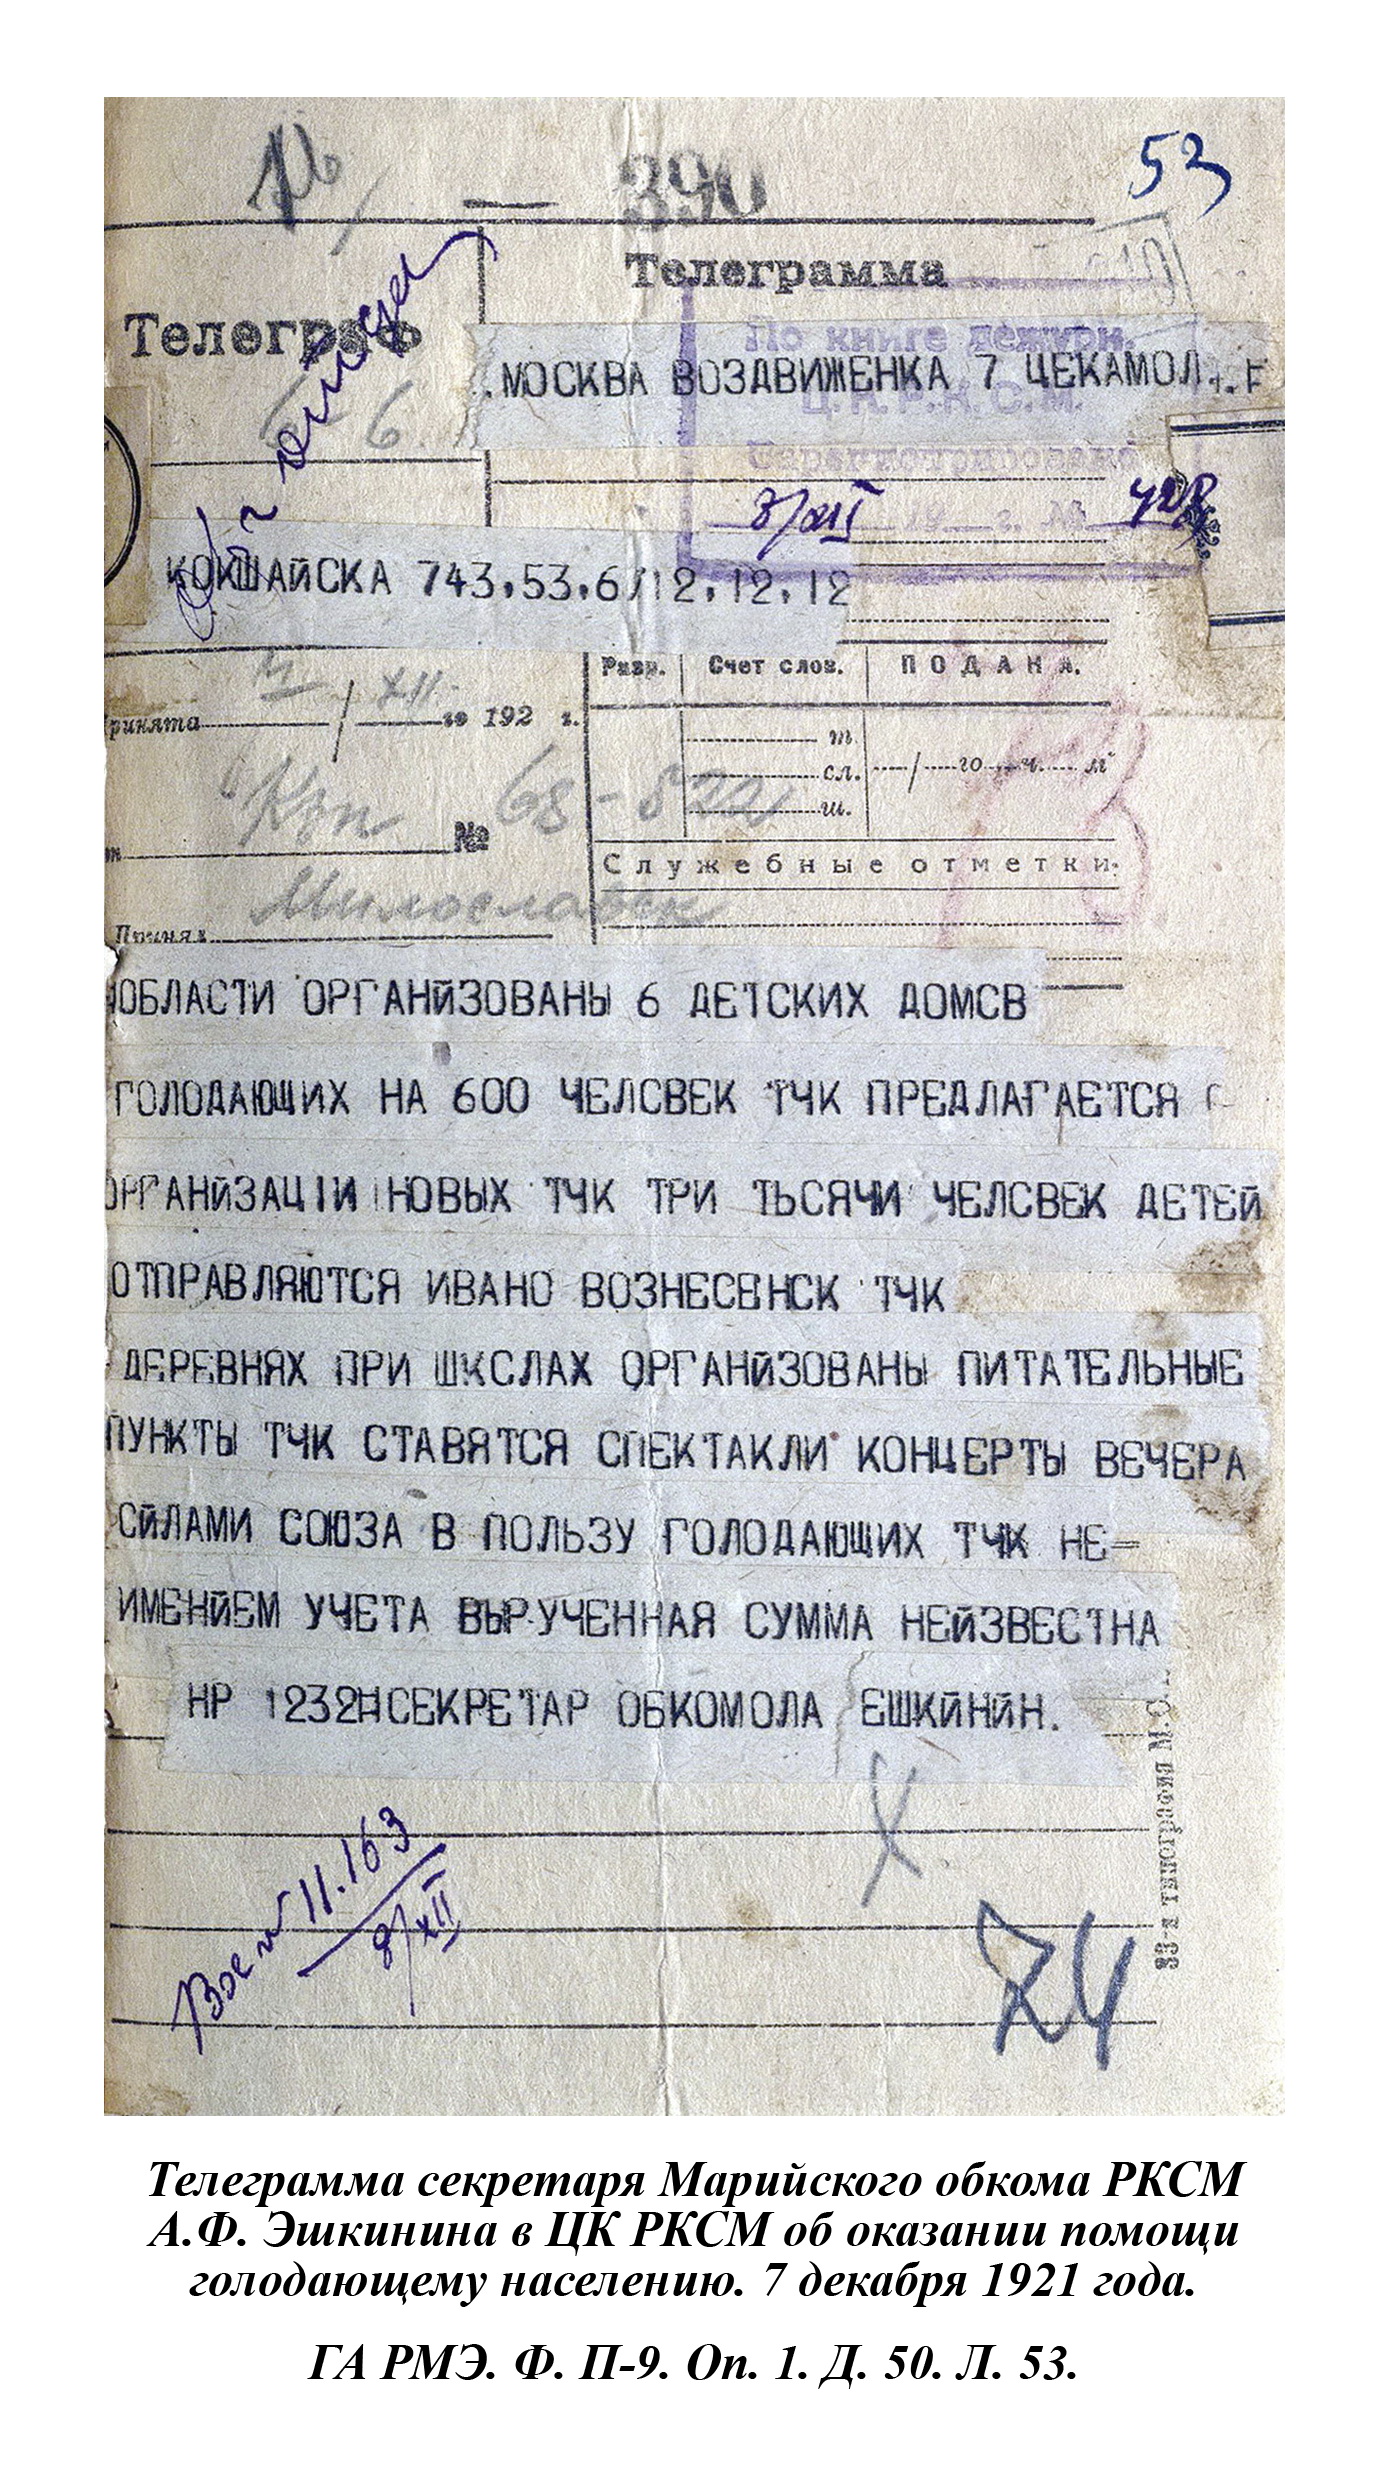 390
53
Телеграмма
Телеграф
По книге дежурн.
МОСКВА ВОЗДВИЖЕНКА 7 ЦЕКАМОЛ
Ц.К.Р.К.С.М.
6.
8/XII 19 г. №
КОКШАЙСКА 743,53,6/12,12,12
Разр. Счет слов. ПОДАНА.
XII
Принята го 192 г.
т.
сл. / го ч. м
ш.
№ 68-522
Служебные отметки.
Милославск
Принял
ОБЛАСТИ ОРГАНЙЗОВАНЫ 6 ДЕТСКИХ ДОМСВ
ГОЛОДАЮЩИХ НА 600 ЧЕЛСВЕК ТЧК ПРЕДЛАГАЕТСЯ
ОРГАНЙЗАЦIИ НОВЫХ ТЧК ТРИ ТЬСЯЧИ ЧЕЛСВЕК ДЕТЕЙ
ОТПРАВЛЯЮТСЯ ИВАНО ВОЗНЕСЕНСК ТЧК
ДЕРЕВНЯХ ПРИ ШКСЛАХ ОРГАНЙЗОВАНЫ ПИТАТЕЛЬНЫЕ
ПУНКТЫ ТЧК СТАВЯТСЯ СПЕКТАКЛИ КОНЦЕРТЫ ВЕЧЕРА
СЙЛАМИ СОЮЗА В ПОЛЬЗУ ГОЛОДАЮЩИХ ТЧК НЕ=
ИМЕНЙЕМ УЧЕТА ВЫР.УЧЕННАЯ СУММА НЕЙЗВЕСТНА
НР 1232Н СЕКРЕТАР ОБКОМОЛА ЕШКЙНЙН.
33-я типография М.С.
11.163
8/XII
74
Телеграмма секретаря Марийского обкома РКСМ
А.Ф. Эшкинина в ЦК РКСМ об оказании помощи
голодающему населению. 7 декабря 1921 года.
ГА РМЭ. Ф. П-9. Оп. 1. Д. 50. Л. 53.